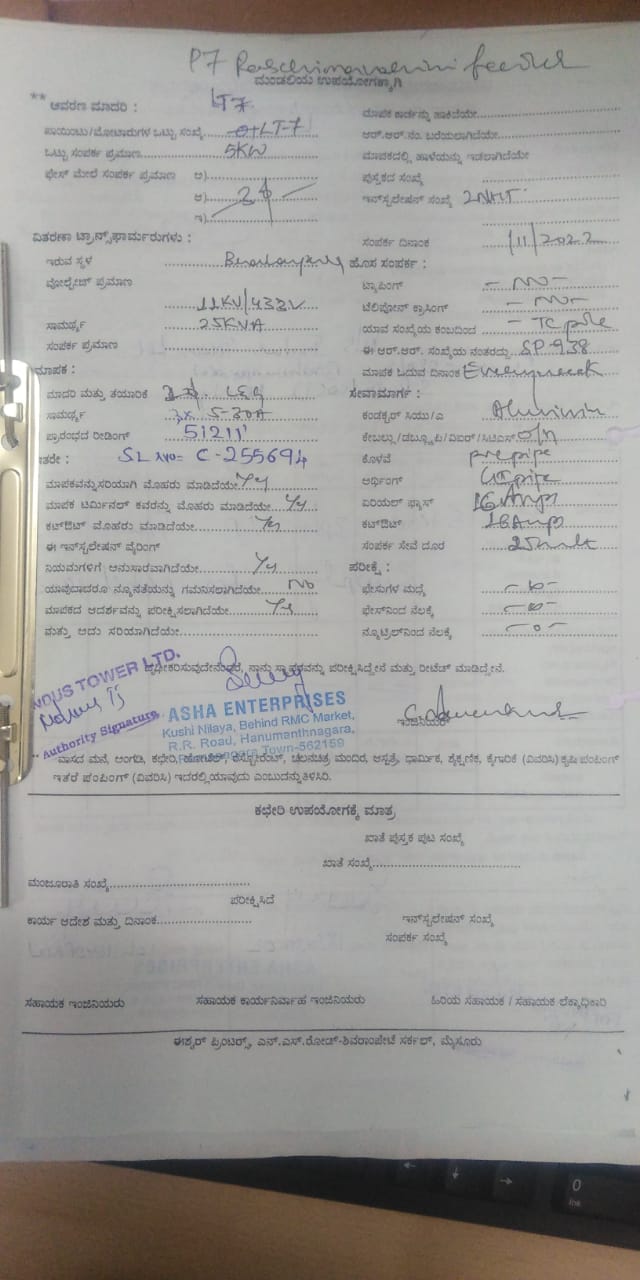 P7 Paschimavahini feeder
ಮಂಡಲಿಯ ಉಪಯೋಗಕ್ಕಾಗಿ
** ಆವರಣ ಮಾದರಿ : LT7
ಪಾಯಿಂಟು/ಮೋಟಾರುಗಳ ಒಟ್ಟು ಸಂಖ್ಯೆ LT-7
ಒಟ್ಟು ಸಂಪರ್ಕ ಪ್ರಮಾಣ 5KW
ಫೇಸ್ ಮೇಲೆ ಸಂಪರ್ಕ ಪ್ರಮಾಣ ಅ)
ಆ)
ಇ)
ಮಾಪಕ ಕಾರ್ಡನ್ನು ಹಾಕಿದೆಯೇ
ಆರ್.ಆರ್.ನಂ. ಬರೆಯಲಾಗಿದೆಯೇ
ಮಾಪಕದಲ್ಲಿ ಹಾಳೆಯನ್ನು ಇಡಲಾಗಿದೆಯೇ
ಪುಸ್ತಕದ ಸಂಖ್ಯೆ
ಇನ್‌ಸ್ಟಲೇಷನ್ ಸಂಖ್ಯೆ
ಸಂಪರ್ಕ ದಿನಾಂಕ /11/2022
ವಿತರಣಾ ಟ್ರಾನ್ಸ್‌ಫಾರ್ಮರುಗಳು :
ಇರುವ ಸ್ಥಳ
ವೋಲ್ಟೇಜ್ ಪ್ರಮಾಣ
11KV/433V
ಸಾಮರ್ಥ್ಯ 25KVA
ಸಂಪರ್ಕ ಪ್ರಮಾಣ
ಹೊಸ ಸಂಪರ್ಕ :
ಟ್ಯಾಪಿಂಗ್ - NO -
ಟೆಲಿಫೋನ್ ಕ್ರಾಸಿಂಗ್ - NO -
ಯಾವ ಸಂಖ್ಯೆಯ ಕಂಬದಿಂದ - TC pole
ಈ ಆರ್.ಆರ್. ಸಂಖ್ಯೆಯ ನಂತರದ್ದು SP-938
ಮಾಪಕ ಓದುವ ದಿನಾಂಕ
ಮಾಪಕ :
ಮಾದರಿ ಮತ್ತು ತಯಾರಿಕೆ L&G
ಸಾಮರ್ಥ್ಯ 3x 5-30A
ಪ್ರಾರಂಭದ ರೀಡಿಂಗ್ 51211
ಇತರೇ : SL NO= C-255694
ಮಾಪಕವನ್ನು ಸರಿಯಾಗಿ ಮೊಹರು ಮಾಡಿದೆಯೇ Yes
ಮಾಪಕ ಟರ್ಮಿನಲ್ ಕವರನ್ನು ಮೊಹರು ಮಾಡಿದೆಯೇ Yes
ಕಟ್‌ಔಟ್ ಮೊಹರು ಮಾಡಿದೆಯೇ Yes
ಈ ಇನ್‌ಸ್ಟಲೇಷನ್ ವೈರಿಂಗ್
ನಿಯಮಗಳಿಗೆ ಅನುಸಾರವಾಗಿದೆಯೇ Yes
ಯಾವುದಾದರೂ ನ್ಯೂನತೆಯನ್ನು ಗಮನಿಸಲಾಗಿದೆಯೇ NO
ಮಾಪಕದ ಆದರ್ಶವನ್ನು ಪರೀಕ್ಷಿಸಲಾಗಿದೆಯೇ Yes
ಮತ್ತು ಅದು ಸರಿಯಾಗಿದೆಯೇ
ಸೇವಾಮಾರ್ಗ :
ಕಂಡಕ್ಟರ್ ಸಿಯು/ಎ
ಕೇಬಲ್ಲು/ಡಬ್ಲ್ಯೂಪಿ/ವಿಐರ್/ಸಿಟಿಎಸ್ O/H
ಕೊಳವೆ pvc pipe
ಅರ್ಥಿಂಗ್ GI pipe
ಏರಿಯಲ್ ಫ್ಯೂಸ್ 16 Amp
ಕಟ್‌ಔಟ್ 16 Amp
ಸಂಪರ್ಕ ಸೇವೆ ದೂರ
ಪರೀಕ್ಷೆ :
ಫೇಸುಗಳ ಮಧ್ಯೆ - o -
ಫೇಸ್‌ನಿಂದ ನೆಲಕ್ಕೆ - o -
ನ್ಯೂಟ್ರಲ್‌ನಿಂದ ನೆಲಕ್ಕೆ - o -
ದೃಢೀಕರಿಸುವುದೇನೆಂದರೆ, ನಾನು ಸ್ಥಾವರವನ್ನು ಪರೀಕ್ಷಿಸಿದ್ದೇನೆ ಮತ್ತು ರೀಟೆಡ್ ಮಾಡಿದ್ದೇನೆ.
NDUS TOWER LTD.
Authority Signature
ASHA ENTERPRISES
Kushi Nilaya, Behind RMC Market,
R.R. Road, Hanumanthnagara,
Town-562159
ಇಂಜಿನಿಯರ್
** ವಾಸದ ಮನೆ, ಅಂಗಡಿ, ಕಛೇರಿ, ಹೋಟೆಲ್, ರೆಸ್ಟೋರೆಂಟ್, ಚಲನಚಿತ್ರ ಮಂದಿರ, ಆಸ್ಪತ್ರೆ, ಧಾರ್ಮಿಕ, ಶೈಕ್ಷಣಿಕ, ಕೈಗಾರಿಕೆ (ವಿವರಿಸಿ) ಕೃಷಿ ಪಂಪಿಂಗ್
ಇತರೆ ಪಂಪಿಂಗ್ (ವಿವರಿಸಿ) ಇದರಲ್ಲಿ ಯಾವುದು ಎಂಬುದನ್ನು ತಿಳಿಸಿರಿ.
ಕಛೇರಿ ಉಪಯೋಗಕ್ಕೆ ಮಾತ್ರ
ಖಾತೆ ಪುಸ್ತಕ ಪುಟ ಸಂಖ್ಯೆ
ಖಾತೆ ಸಂಖ್ಯೆ
ಮಂಜೂರಾತಿ ಸಂಖ್ಯೆ
ಪರೀಕ್ಷಿಸಿದೆ
ಕಾರ್ಯ ಆದೇಶ ಮತ್ತು ದಿನಾಂಕ
ಇನ್‌ಸ್ಟಲೇಷನ್ ಸಂಖ್ಯೆ
ಸಂಪರ್ಕ ಸಂಖ್ಯೆ
ಸಹಾಯಕ ಇಂಜಿನಿಯರು ಸಹಾಯಕ ಕಾರ್ಯನಿರ್ವಾಹ ಇಂಜಿನಿಯರು ಹಿರಿಯ ಸಹಾಯಕ / ಸಹಾಯಕ ಲೆಕ್ಕಾಧಿಕಾರಿ
ಈಶ್ವರ್ ಪ್ರಿಂಟರ್ಸ್, ಎನ್.ಎಸ್.ರೋಡ್-ಶಿವರಾಂಪೇಟೆ ಸರ್ಕಲ್, ಮೈಸೂರು